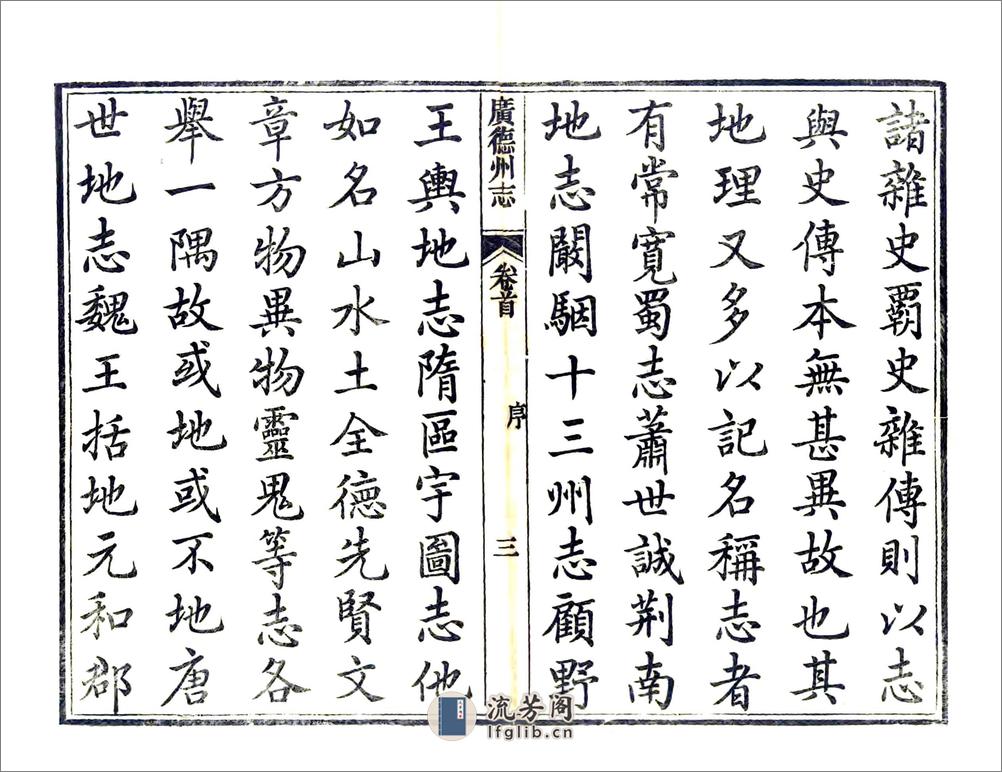 諸雜史覇史雜傳則以志
與史傳本無甚異故也其
地理又多以記名稱志者
有常寬蜀志蕭世誠荆南
地志闞駰十三州志顧野
廣德州志
卷首
序
三
王輿地志隋區宇圖志他
如名山水土全德先賢文
章方物異物靈鬼等志各
舉一隅故或地或不地唐
世地志魏王括地元和郡
流芳阁
lfglib.cn